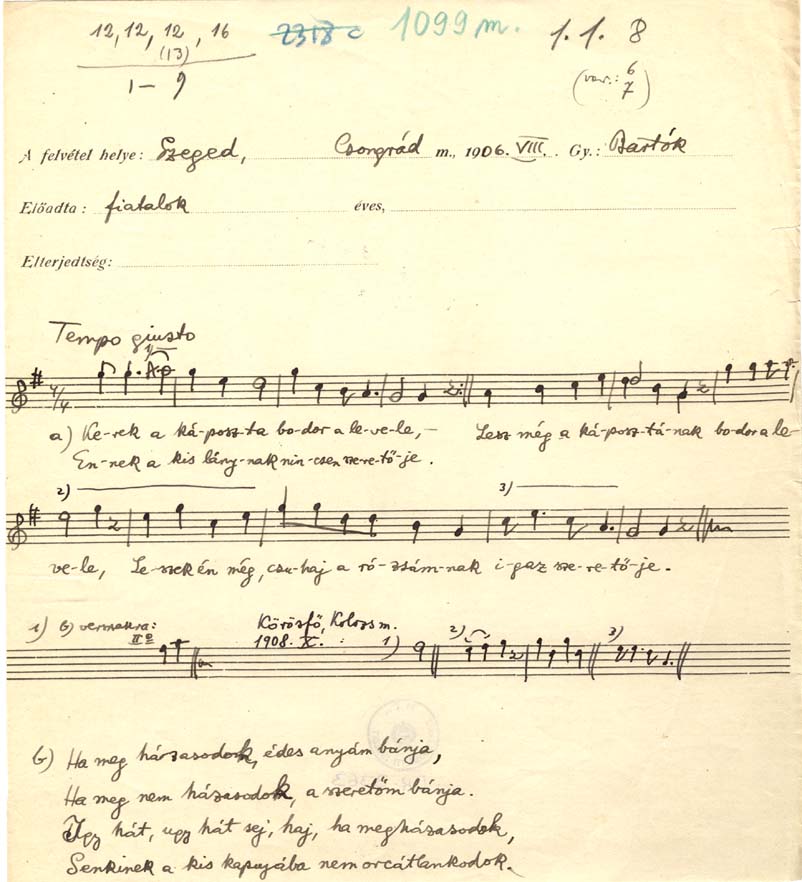 12, 12, 12, 16 2318 c 1099 m. 1. 1. 8
(13)
1– 9 (var.: 6
7)
A felvétel helye: Szeged, Csongrád m., 1906. VIII. Gy.: Bartók
Előadta: fiatalok éves,
Elterjedtség:
Tempo giusto
1)
a) Ke-rek a ká-posz-ta bo-dor a le-ve-le, – Lesz még a ká-posz-tá-nak bo-dor a le-
En-nek a kis lány-nak nin-csen sze-re-tő-je.
2) 3)
ve-le, Le-szek én még, csu-haj a ró-zsám-nak i-gaz sze-re-tő-je.
1) b) versszakra: Körösfő, Kolozs m.
IIº 1908. X. : 1) 2) 3)
b) Ha meg házasodok, édes anyám bánja,
Ha meg nem házasodok, a szeretőm bánja.
Igy hát, ugy hát sej, haj, ha megházasodok,
Senkinek a kis kapujába nem orcátlankodok.